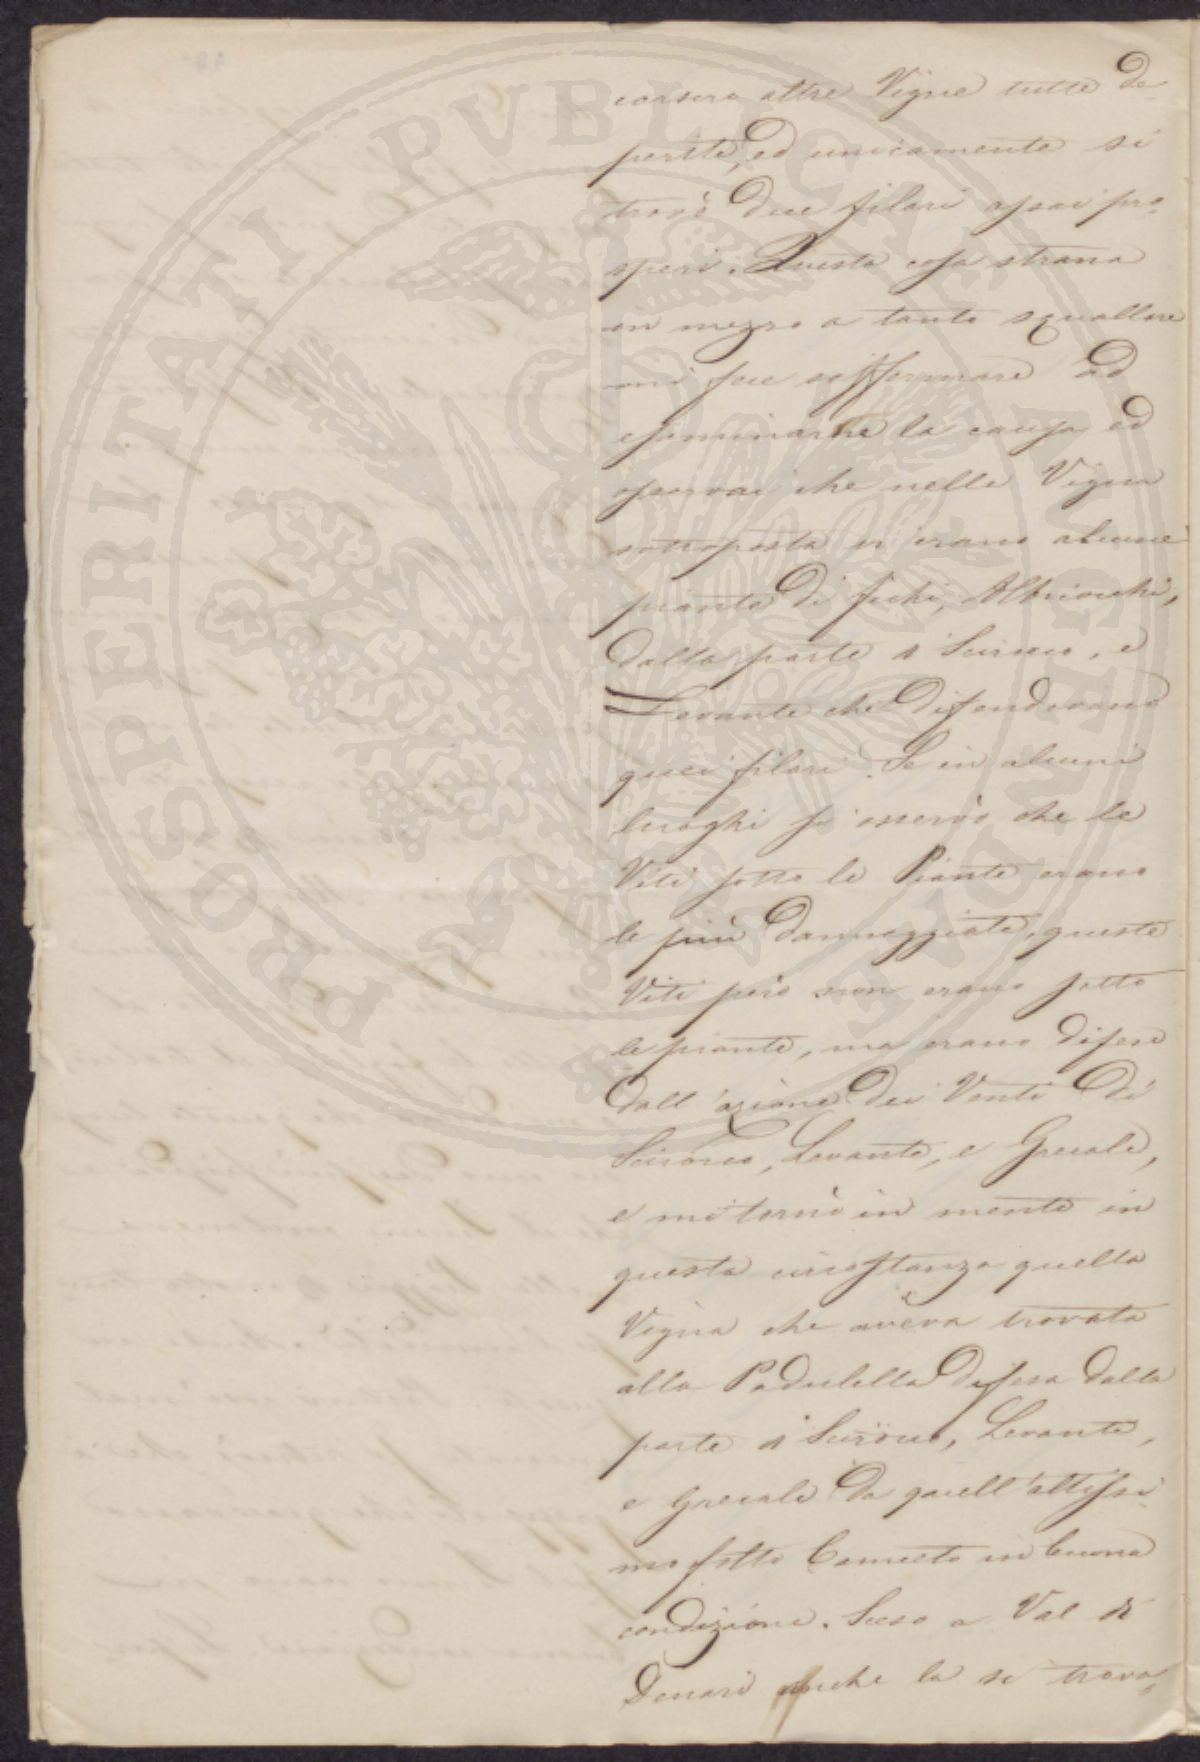 corsero altre Vigne tutte de-
perite, ed unicamente si
trovò due filari assai pro-
speri. Questa cosa strana
in mezzo a tanto squallore
mi fece soffermare ad
esaminarne la causa ed
osservai che nella Vigna
sottoposta vi erano alcune
piante di fichi, Albicochi,
dalla parte di Scirocco, e
Levante che difendevano
quei filari. Se in alcuni
luoghi si osservò che le
Viti sotto le Piante erano
le più danneggiate, queste
Viti però non erano sotto
le piante, ma erano difese
dall'azione dei Venti di
Scirocco, Levante, e Grecale,
e mi tornò in mente in
questa circostanza quella
Vigna che aveva trovata
alla Padulella difesa dalla
parte di Scirocco, Levante,
e Grecale da quell'altissi-
mo folto Canneto in buona
condizione. Sceso a Val di
Denari anche la si trova-
PROSPERITATI PVBLICAE AVGENDAE